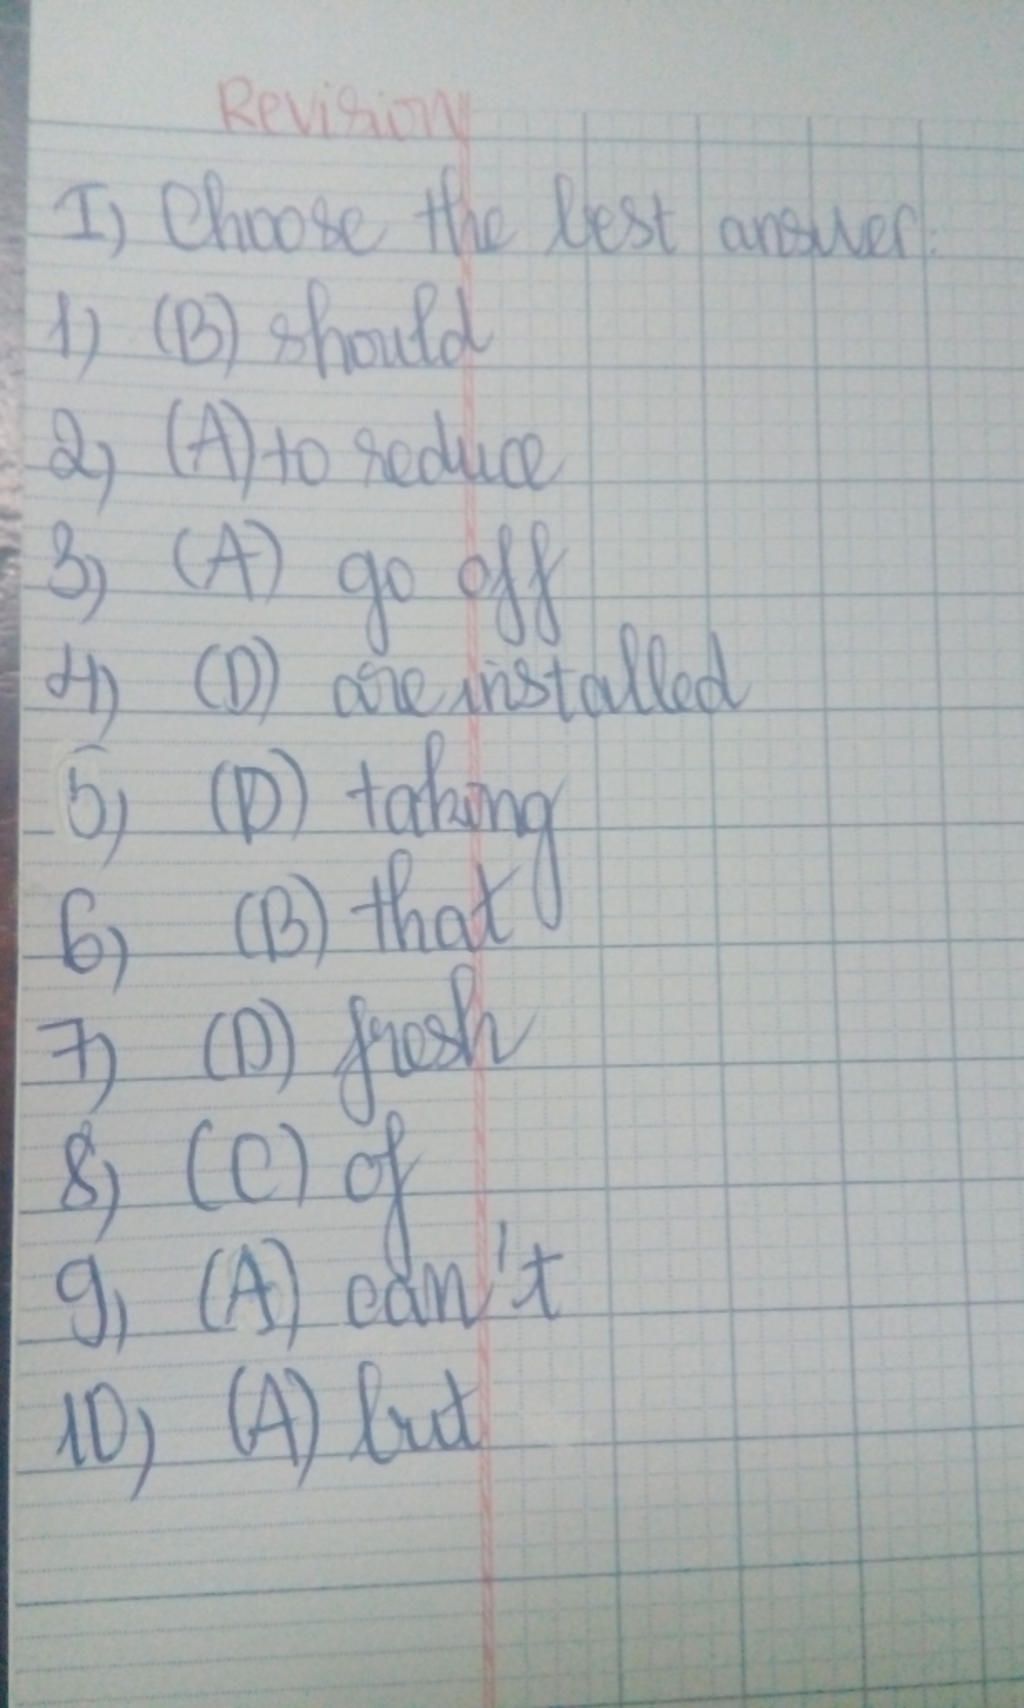 Revision
I) Choose the best answer:
1) (B) should
2) (A) to reduce
3) (A) go off
4) (D) are installed
5) (D) taking
6) (B) that
7) (D) fresh
8) (C) of
9) (A) can't
10) (A) but